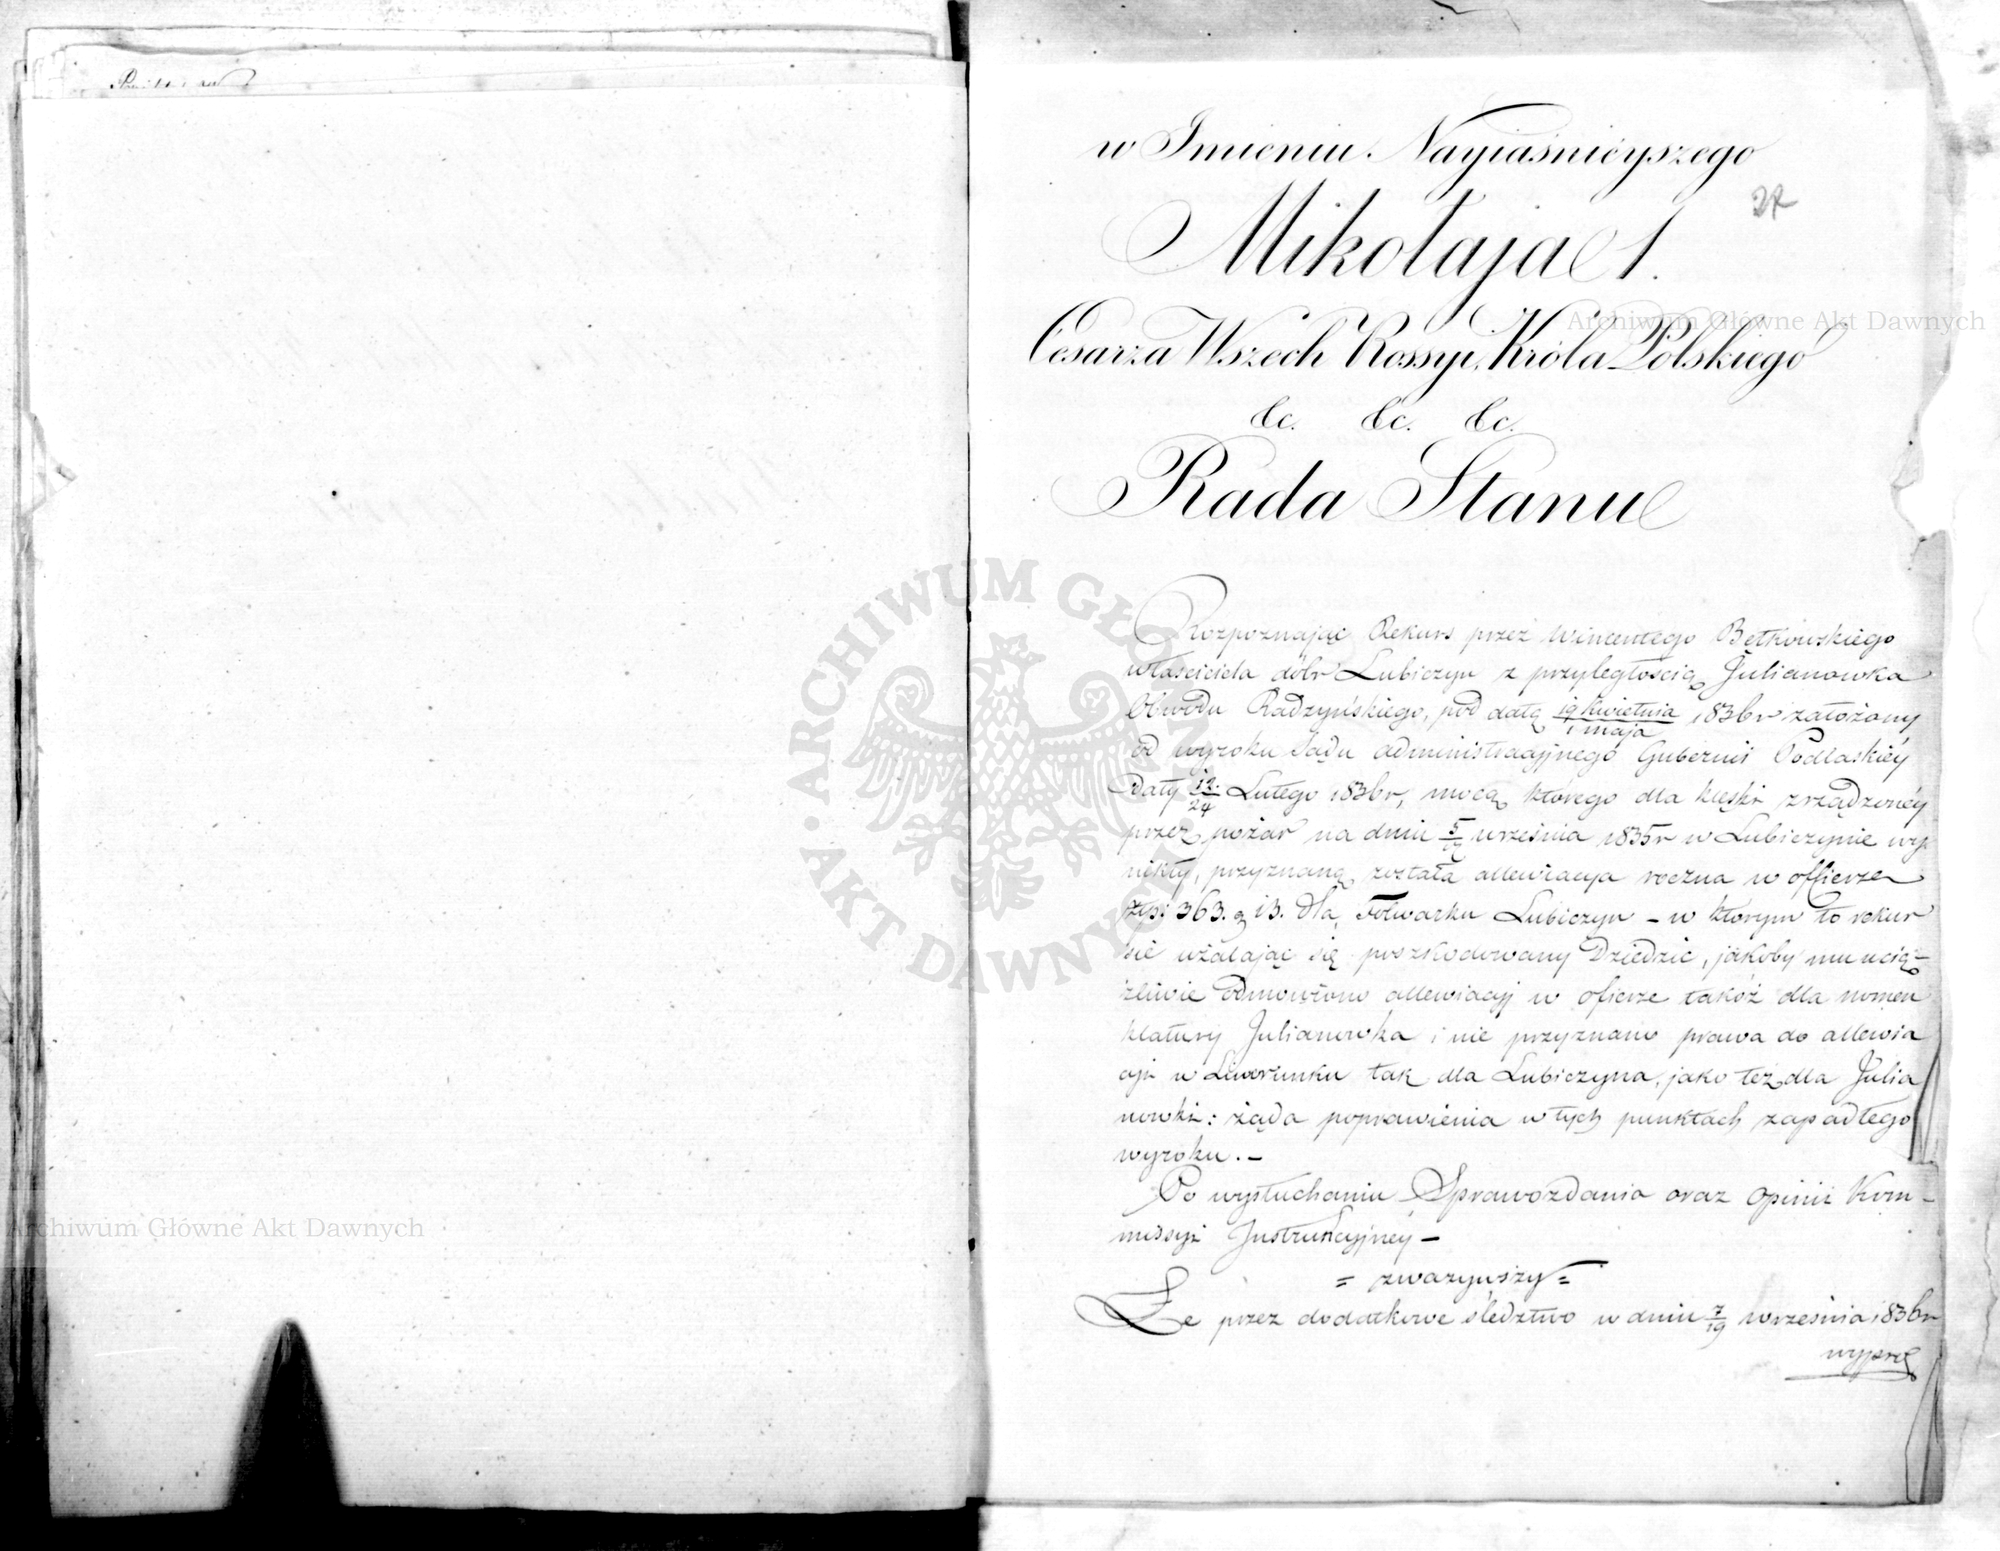 w Imieniu Nayiaśnieyszego
27
Mikołaja 1.
Cesarza Wszech Rossyi, Króla Polskiego
&c. &c. &c.
Rada Stanu
Rozpoznając Rekurs przez Wincentego Bętkowskiego
właściciela dóbr Lubiczyn z przyległością Julianowka
Obwodu Radzyńskiego, pod datą 19 kwietnia / 1 maja 1836r założony
od wyroku Sądu administracyjnego Gubernii Podlaskiéy
Daty 12/24 Lutego 1836r, mocą którego dla klęski zrządzonéy
przez pożar na dniu 5/17 września 1835r w Lubiczynie wy-
nikły, przyznaną została allewiacya roczna w offierze
złp: 363. g 13. dla Folwarku Lubiczyn – w którym to rekur
sie użalając się poszkodowany Dziedzic, jakoby mu ucią-
żliwie odmówiono allewiacyj w ofierze takóż dla nomen
klatury Julianowka i nie przyznano prawa do allewia
cyi w Liwerunku tak dla Lubiczyna, jako też dla Julia
nowki: żąda poprawienia w tych punktach zapadłego
wyroku. –
Po wysłuchaniu Sprawozdania oraz Opinii Kom-
missyi Instrukcyjnéy –
= zważywszy =
Że przez dodatkowe śledztwo w dniu 7/19 września 1836r
wyprο
Archiwum Główne Akt Dawnych
Archiwum Główne Akt Dawnych
ARCHIWUM GŁÓWNE · AKT DAWNYCH ·